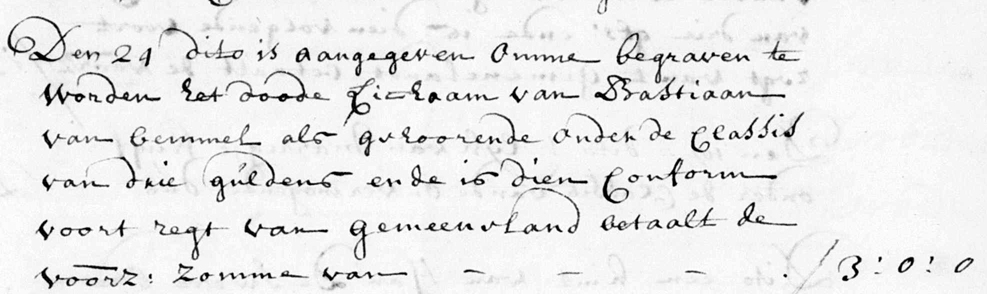 Den 24 dito is aangegeven omme begraven te
worden het doode Lichaam van Bastiaan
van Gemmel als gehoorende onder de Classis
van drie guldens ende is dien Conform
voort regt van gemeeneland betaalt de
voorz: zomme van - - - . / 3 : 0 : 0